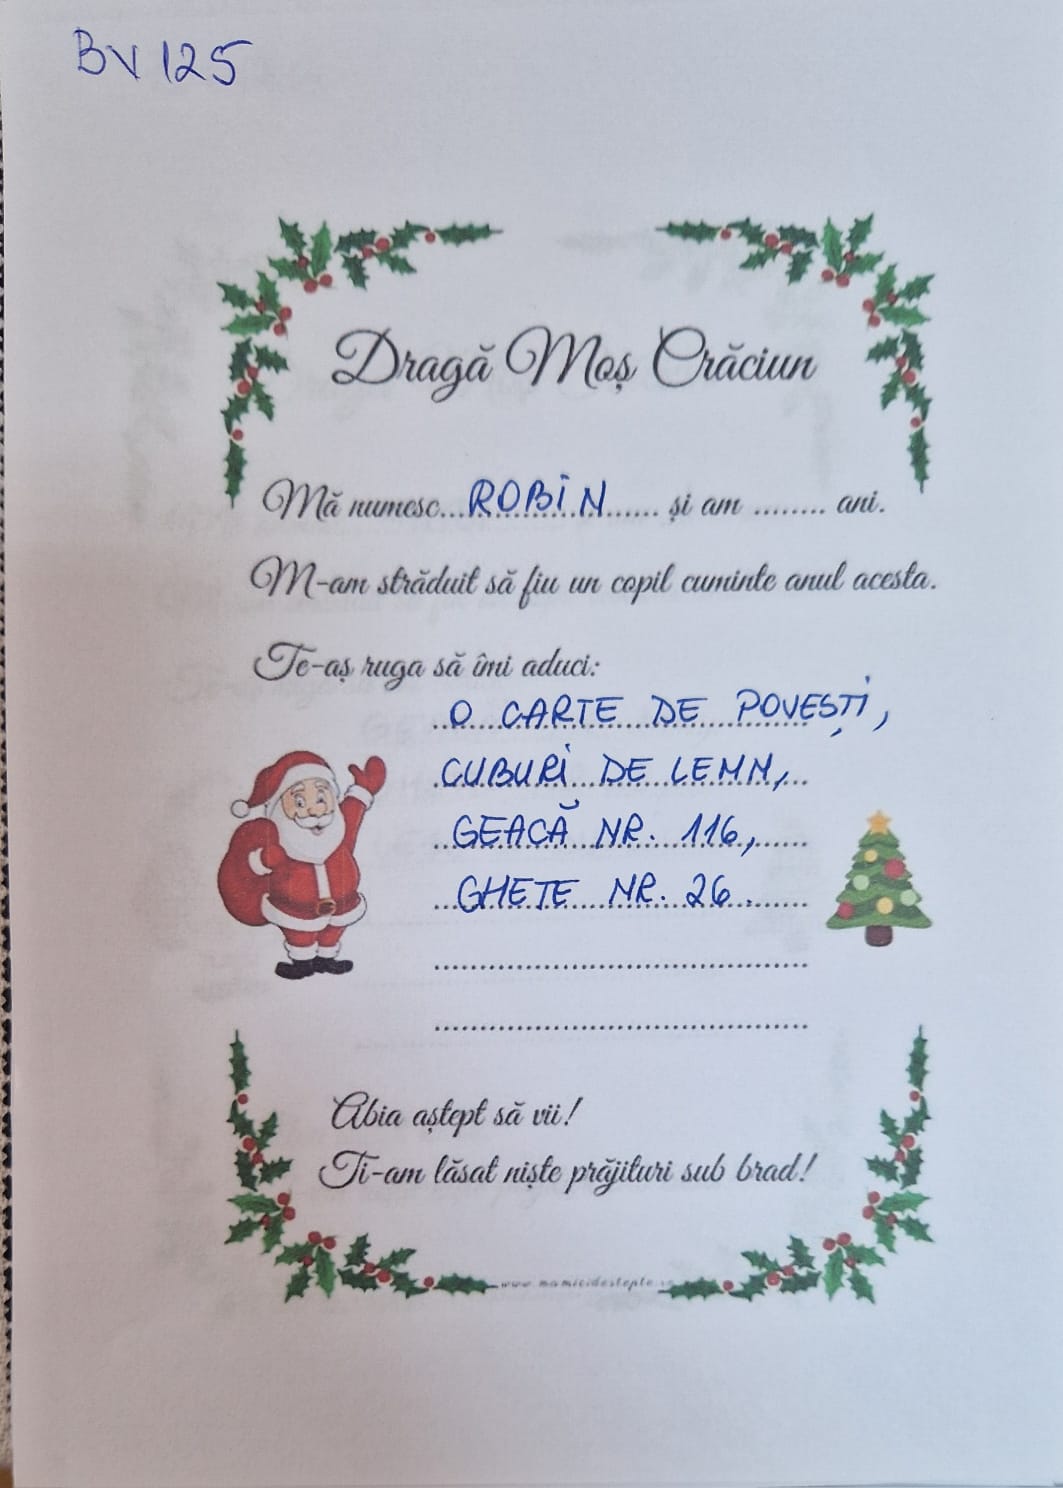 BV 125
Dragă Moș Crăciun
Mă numesc...ROBIN...... și am ........ ani.
M-am străduit să fiu un copil cuminte anul acesta.
Te-aș ruga să îmi aduci:
O CARTE DE POVEȘTI,
CUBURI DE LEMN,
GEACĂ NR. 116,
GHETE NR. 26.
Abia aștept să vii!
Ti-am lăsat niște prăjituri sub brad!